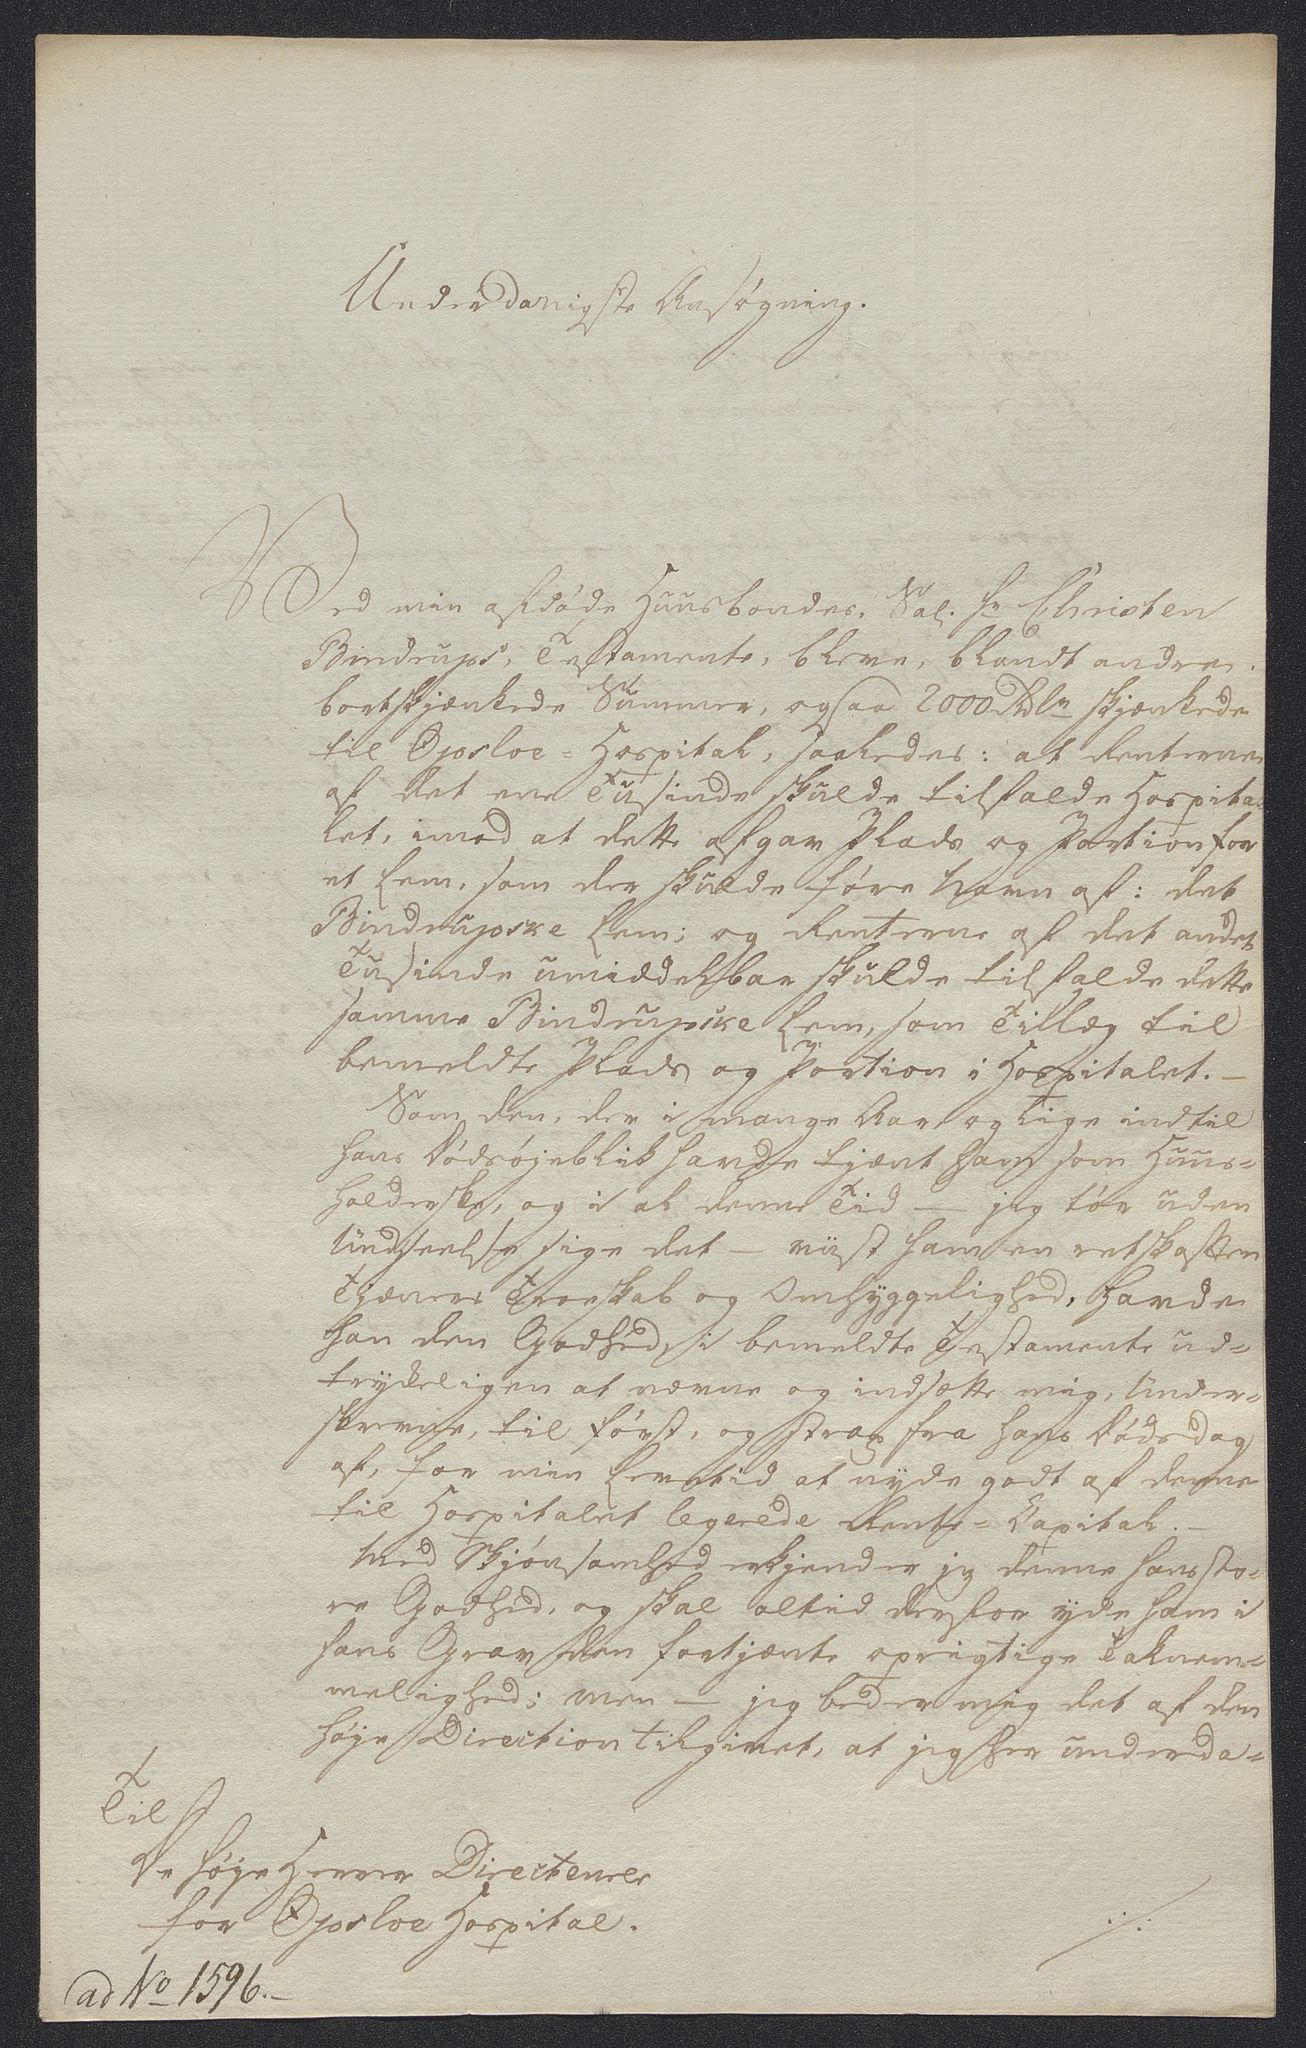 Underdanigste Ansøgning.
Ved min afdøde Huusbondes, Sal. Hr Christen
Bindrups, Testamente, bleve, blandt andre
bortskjænkede Summer, ogsaa 2000 Rdlr skjænkede
til Opsloe=Hospital, saaledes: at Renterne
af det ene Tusinde skulde tilfalde Hospita-
let, imod at dette afgav Plads og Portion for
et Lem, som der skulde føre Navn af: det
Bindrupske Lem; og Renterne af det andet
Tusinde umiddelbar skulde tilfalde dette
samme Bindrupske Lem, som Tillæg til
bemeldte Plads og Portion i Hospitalet. –
Som den, der i mange Aar og lige indtil
hans Dødsøjeblik havde tjent ham som Huus=
holderske, og i al denne Tid — jeg tør uden
Undseelse sige det — viist ham en retskaffen
Tjæners Troeskab og Omhyggelighed, havde
han den Godhed, i bemeldte Testamente ud=
trykkeligen at nævne og indsætte mig, Under=
skrevne, til først, og strax fra hans Dødsdag
af, for min Levetid at nyde godt af denne
til Hospitalet legerede Rente=Capital. –
Med Skjønsomhed erkjender jeg denne hans sto=
re Godhed, og skal altid derfor yde ham i
hans Grav den fortjente oprigtige Taknem=
melighed; men — jeg beder mig det af den
høje Direction tilgivet, at jeg her underda=
Til
De høje Herrer Directeurer
for Opsloe Hospital.
./.
ad No 1596. –